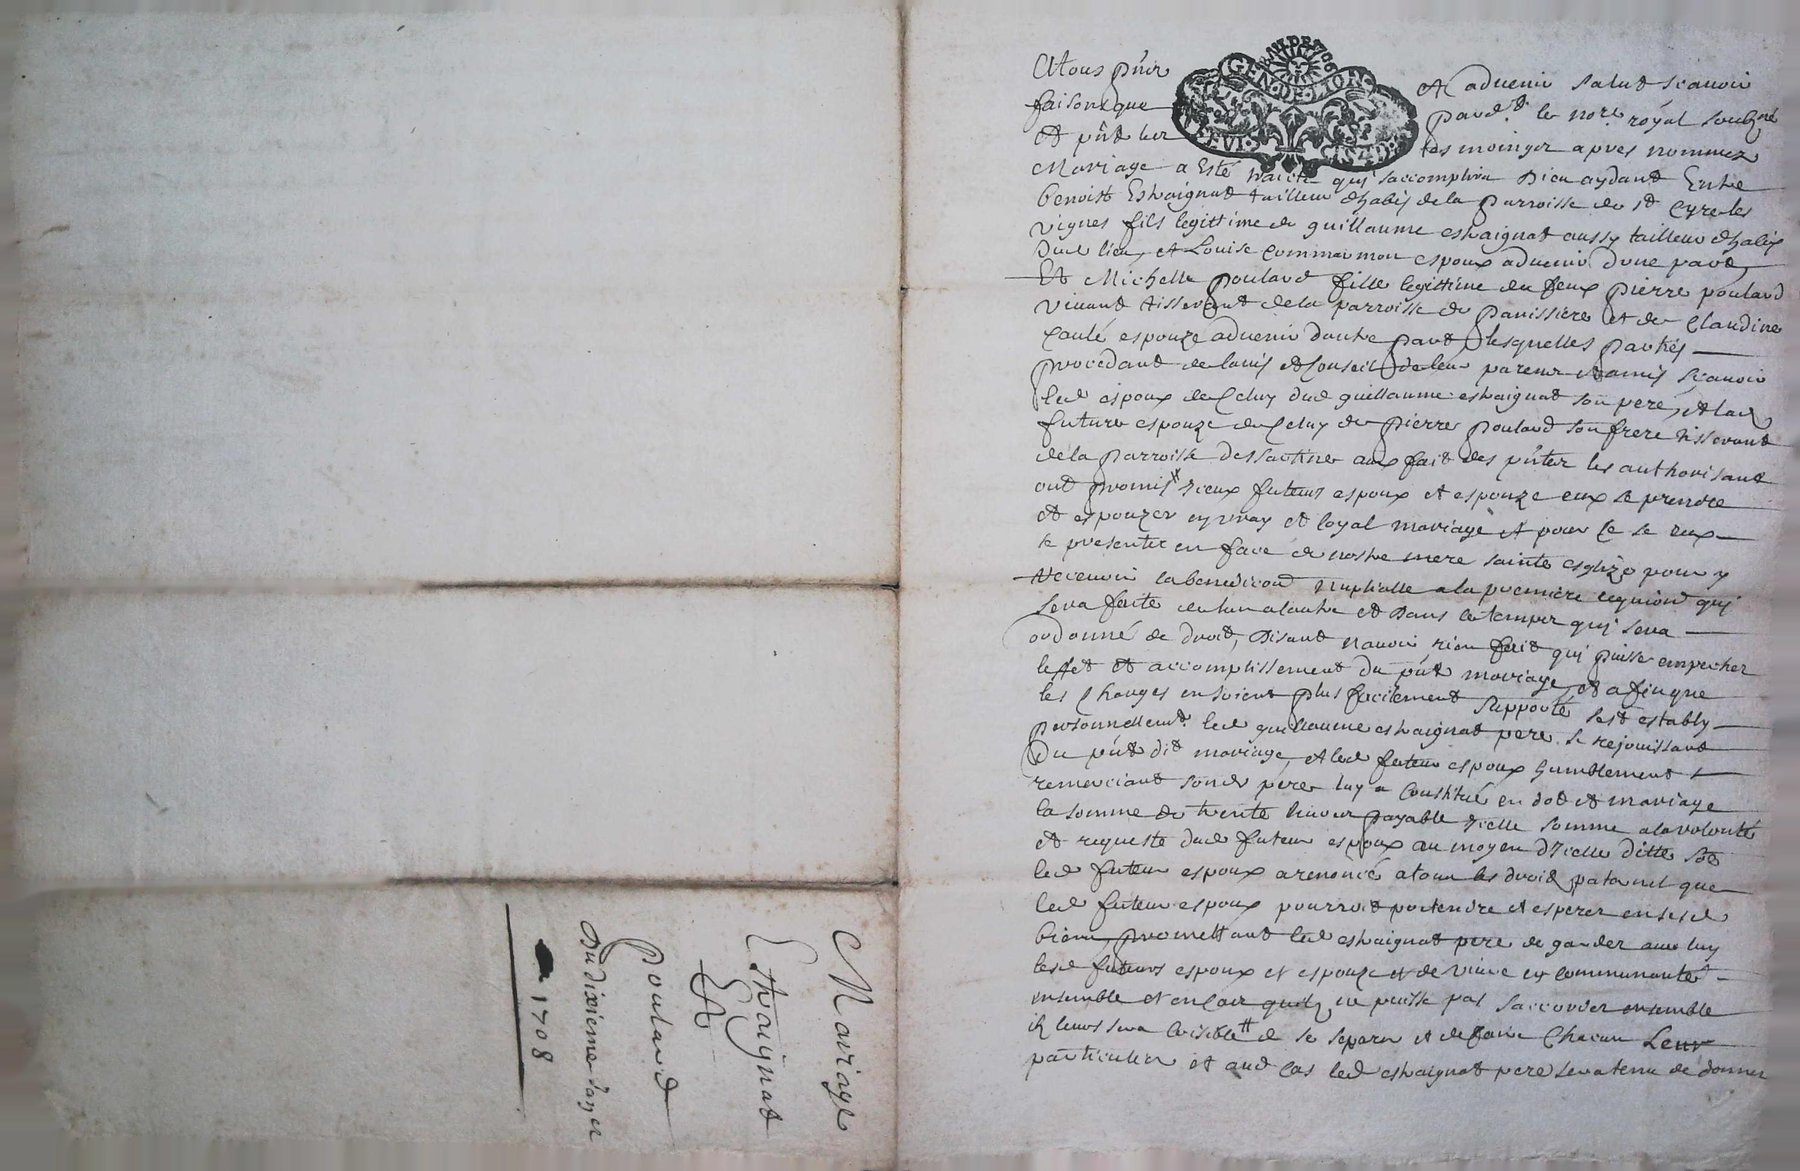 Mariage
Estraignat
Et
Poulard
Du dixieme Janer
1708
GEN DE LION
Atous pnts et aduenir salut scauoir
faisons que pard.t le no.re royal soubz.né
et pnts les tesmoingz apres nommez
Mariage a esté traicté qui saccomplira Dieu aydant Entre
benoist Estraignat tailleur dhabis de la parroisse de st Cyre les
vignes fils legittime de guillaume estraignat aussy tailleur dhabis
dud lieu et Louise espoux aduenir dune part
Et Michelle poulard fille legittime de feux pierre poulard
viuant tisserant de la parroisse de panissiere et de Claudine
espouze aduenir dautre part lesquelles parties
procedant de lauis et Conseil de leur parens et amis scauoir
led espoux de Celuy dud guillaume estraignat son pere, et lad
future espouze de Celuy de pierre poulard son frere tisserant
de la parroisse aux fait des pntes les authorisant
ont promis iceux futeurs espoux et espouze eux se prendre
et espouzer en vray et loyal mariage et pour Ce se eux
se presenter en face de nostre mere sainte esglize pour y
receuoir la benediction nuptialle a la premiere requi.on qui
sera faite de lun a lautre et dans le temps qui sera
ordonné de droit, disant nauoir rien fait qui puisse empecher
leffet et accomplissement du pnt mariage, et afin que
les Charges en soient plus facilement supporté sest estably
personnellemt led guillaume estraignat pere se rejouissant
Du pnt dit mariage, et led futeur espoux humblement
remerciant sond pere luy a Constitué en dot et mariage
la somme de trente liures payable icelle somme a la volonté
et requeste dud futeur espoux au moyen dicelle ditte soe
led futeur espoux a renoncé a tous les droit paternel que
led futeur espoux pourroit pretendre et esperer en sesd
biens, promettant led estraignat pere de garder auec luy
lesd futeurs espoux et espouze et de viure en communauté
ensemble et en Cas quils ne puisse pas saccorder ensemble
il leurs sera loisible de se separer et de faire Chacun Leur
particulier et aud Cas led estraignat pere sera tenu de donner